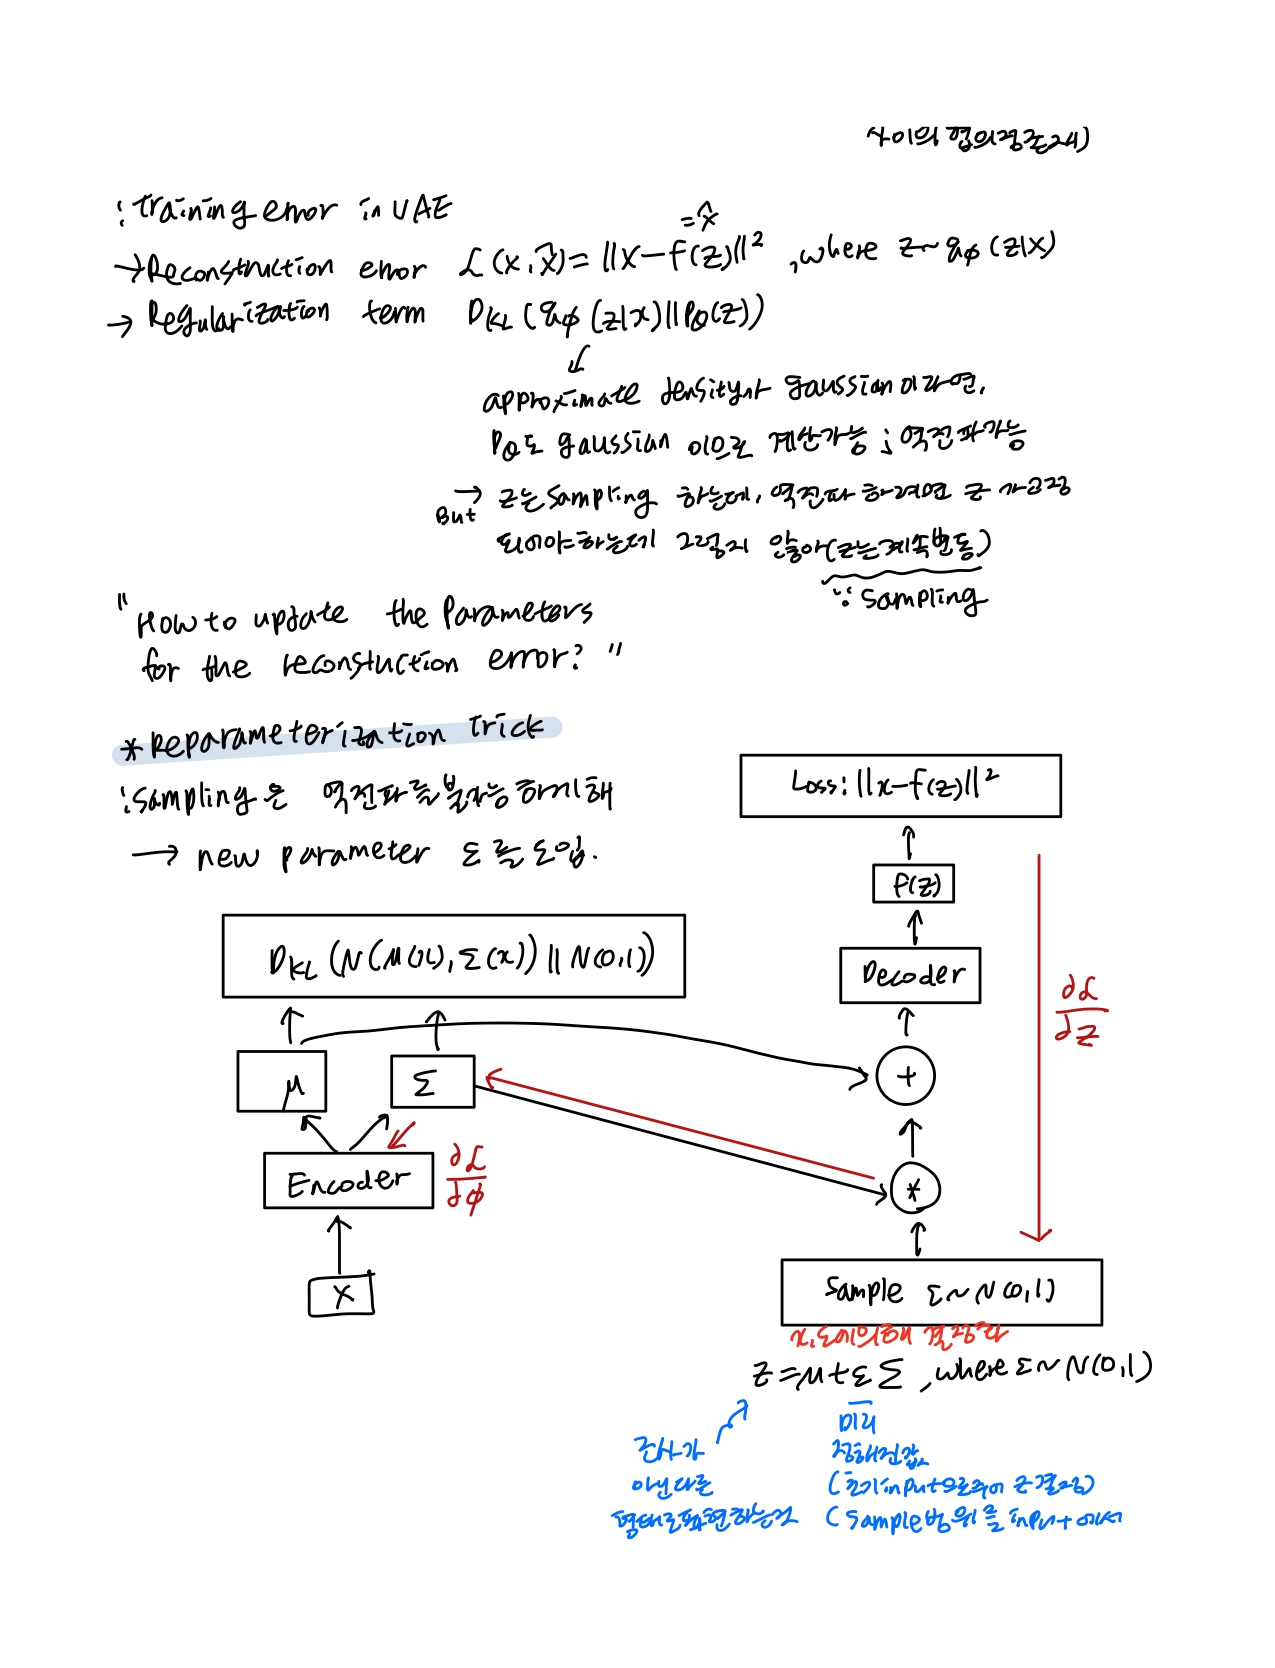 사이의 협의점존재)
: training error in VAE
= x̂
→ Reconstruction error L(x, x̂) = ||x-f(z)||², where z ~ qφ(z|x)
→ Regularization term DKL(qφ(z|x)||Pθ(z))
approximate density가 gaussian이라면,
Pθ도 gaussian 이므로 계산가능 ; 역전파가능
But → z는 sampling 하는데, 역전파 하려면 z가 고정
되어야하는데 그렇지 않아(z는계속변동)
∵ sampling
" How to update the Parameters
for the reconstuction error? "
* Reparameterization Trick
: sampling은 역전파를불가능하게해
→ new parameter ε를도입.
Loss: ||x-f(z)||²
f(z)
DKL(N(μ(x), Σ(x)) || N(0,1))
Decoder
∂L/∂z
μ
Σ
+
Encoder
∂L/∂φ
*
x
Sample ε ~ N(0,1)
x, ε에의해 결정됨
z = μ + εΣ, where ε ~ N(0,1)
미리
근사가
정해진값
아닌다른
(초기input으로주어 z결정)
형태로표현하는것
(sample범위를 input에서